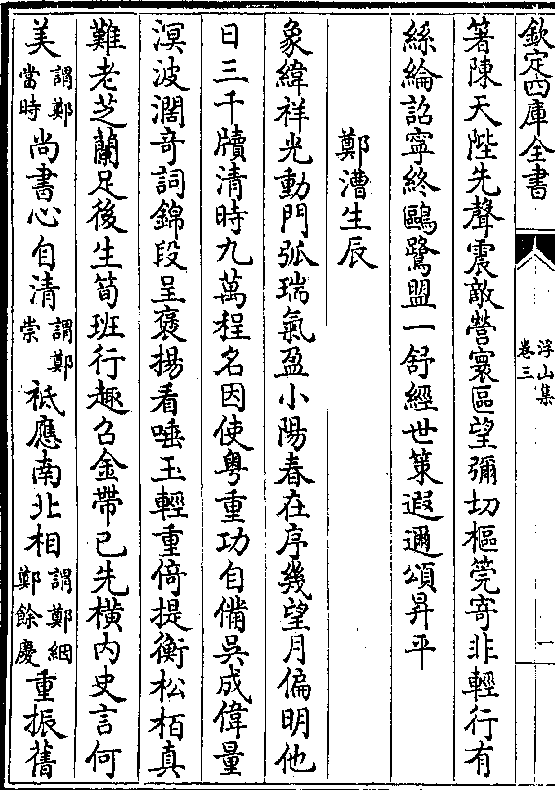 欽定四庫全書
浮山集
卷三
一
箸陳天陛先聲震敵營寰區望彌切樞筦寄非輕行有
絲綸詔寧終鷗鷺盟一舒經世策遐邇頌昇平
鄭漕生辰
象緯祥光動門弧瑞氣盈小陽春在序幾望月偏明他
日三千牘清時九萬程名因使粤重功自備吳成偉量
溟波濶奇詞錦段呈褒揚看唾玉輕重倚提衡松栢真
難老芝蘭足後生筍班行趣召金帶已先橫内史言何
美謂鄭當時尚書心自清謂鄭崇祇應南北相謂鄭絪鄭餘慶重振舊